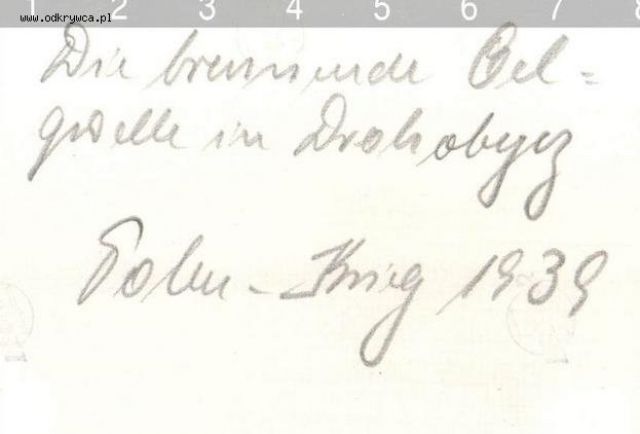 1 2 3 4 5 6 7 8
www.odkrywca.pl
Die brennende Oel=
quelle in Drohobycz
Polen-Krieg 1939